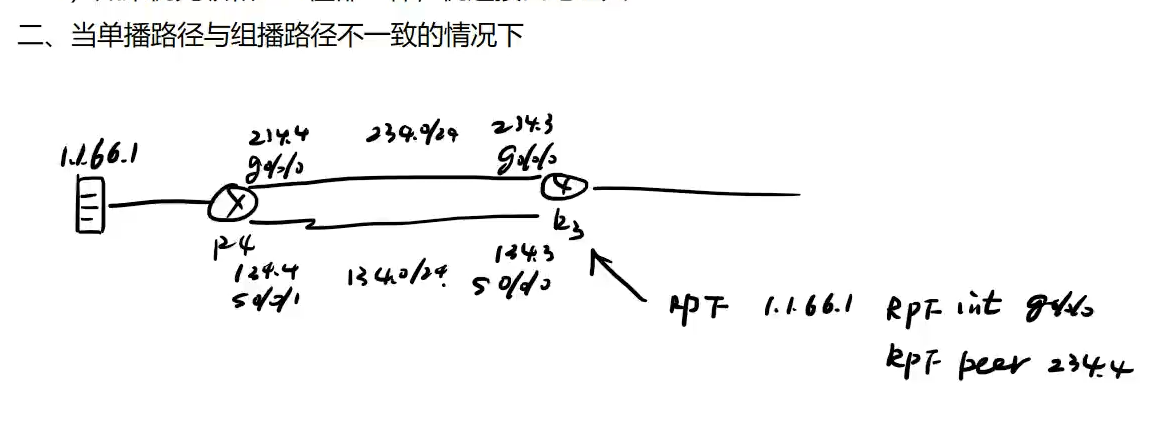 二、当单播路径与组播路径不一致的情况下
1.1.66.1
234.4
g0/0/0
234.0/24
234.3
g0/0/0
R4
R3
134.4
S0/0/1
134.0/24
134.3
S0/0/0
RPF 1.1.66.1 RPF int g0/0/0
RPF peer 234.4